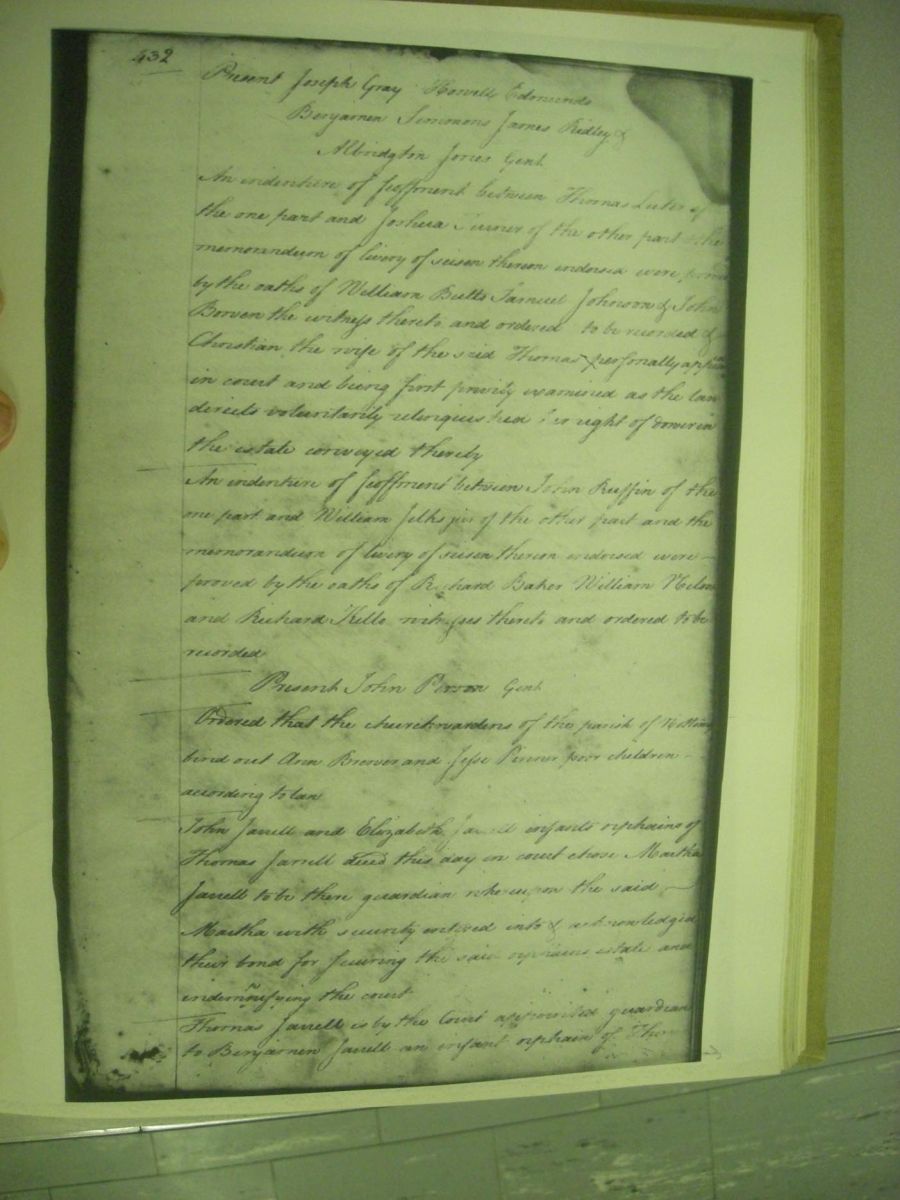 432
Present Joseph Gray Howell Edmunds
Benjamen Simmons James Ridley &
Albridgton Jones Gent
An indenture of feoffment between Thomas Luter of
the one part and Joshua of the other part & the
memorandum of livery of seisen thereon endorsed were proved
by the oaths of William Butts Samuel Johnson & John
Bowen the witness thereto and ordered to be recorded &
Christian the wife of the said Thomas personally appeared
in court and being first privily examined as the law
directs voluntarily relinquished her right of dower in
the estate conveyed thereby
An indenture of feoffment between John Ruffin of the
one part and William Jelks jur of the other part and the
memorandum of livery of seisen thereon endorsed were
proved by the oaths of Richard Baker William
and Richard Kello witnesses thereto and ordered to be
recorded
Present John Person Gent
Ordered that the churchwardens of the parish of
bind out Ann Brewer and Jesse poor children
according to law
John Jarrell and Elizabeth Jarrell infants orphains of
Thomas Jarrell deced this day in court chose Martha
Jarrell to be there guardian whereupon the said
Martha with security entered into & acknowledged
their bond for securing the said orphains estate and
indemnifying the court
Thomas Jarrell is by the Court appointed guardian
to Benjamen Jarrell an infant orphain of